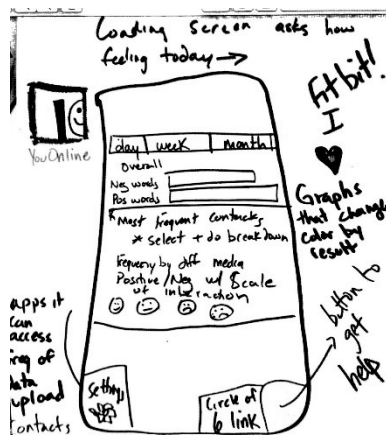 Loading Screen asks how
feeling today →
Fitbit!
I ♥
YouOnline
day week month
Overall
Neg words
Pos words
* Most frequent contacts
* select + do breakdown
frequency by diff media
Positive/Neg w/ Scale
of interaction
Graphs
that change
color by
result
button to
get
help
apps it
can
access
freq of
data
upload
contacts
Settings
Circle of
6 link